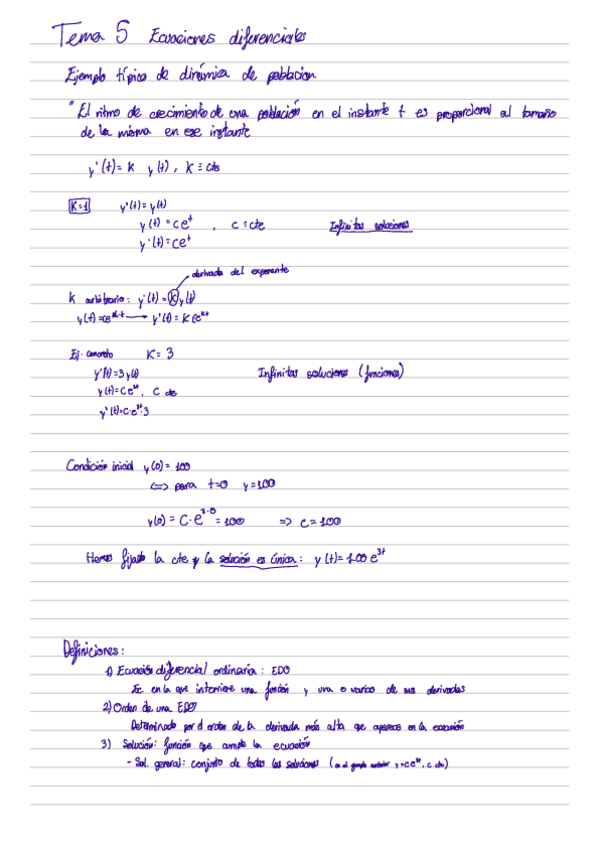 Tema 5 Ecuaciones diferenciales
Ejemplo típico de dinámica de poblacion
"El ritmo de crecimiento de una población en el instante t es proporcional al tamaño
de la misma en ese instante
y'(t)= k y(t), k ≡ cte
K=1 y'(t)=y(t)
y(t)=ce^t , c ≡ cte Infinitas soluciones
y'(t)=ce^t
derivada del exponente
k arbitrario: y'(t)=k y(t)
y(t)=ce^{kt} → y'(t)= k ce^{kt}
Ej. concreto K=3
y'(t)=3y(t) Infinitas soluciones (funciones)
y(t)=Ce^{3t}, C cte
y'(t)=C·e^{3t}·3
Condición inicial y(0)=100
<=> para t=0 y=100
y(0) = C·e^{3·0} = 100 => c=100
Hemos fijado la cte y la solución es única: y(t)=100 e^{3t}
Definiciones:
1) Ecuación diferencial ordinaria: EDO
Ec. en la que interviene una función y una o varias de sus derivadas
2) Orden de una EDO
Determinado por el orden de la derivada más alta que aparece en la ecuación
3) Solución: función que cumple la ecuación
- Sol. general: conjunto de todas las soluciones (en el ejemplo anterior y=ce^{3t}, c cte)